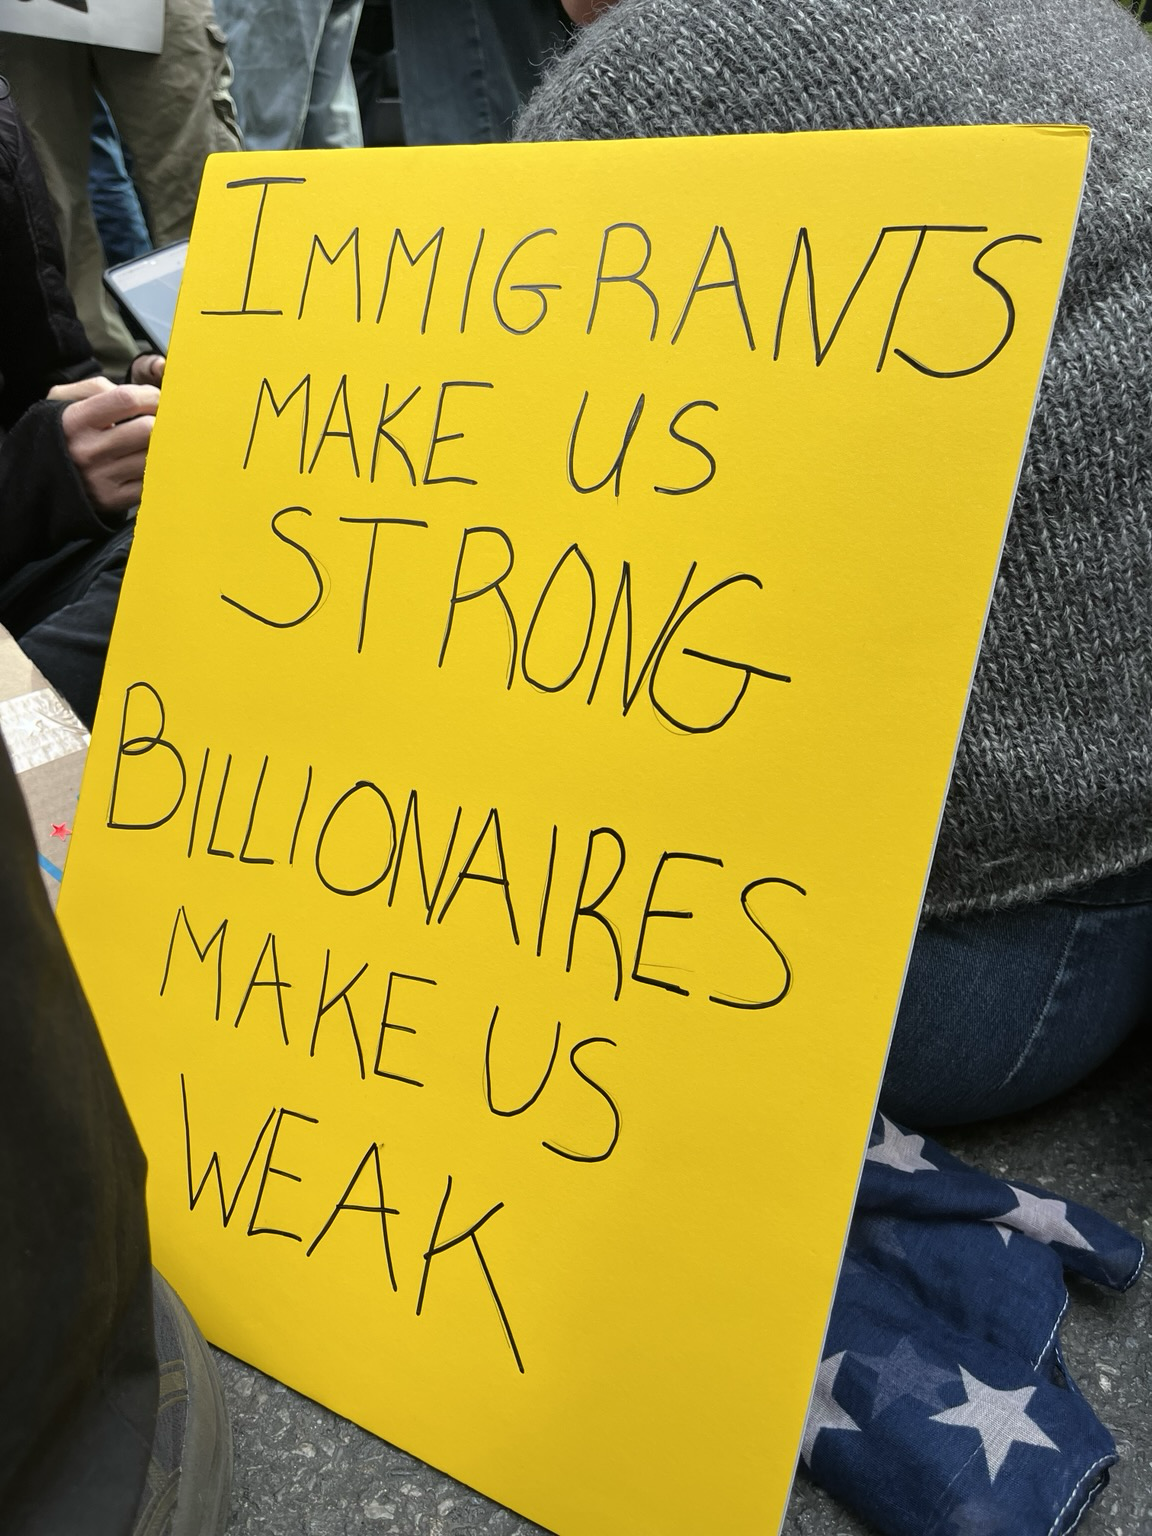 IMMIGRANTS
MAKE US
STRONG
BILLIONAIRES
MAKE US
WEAK